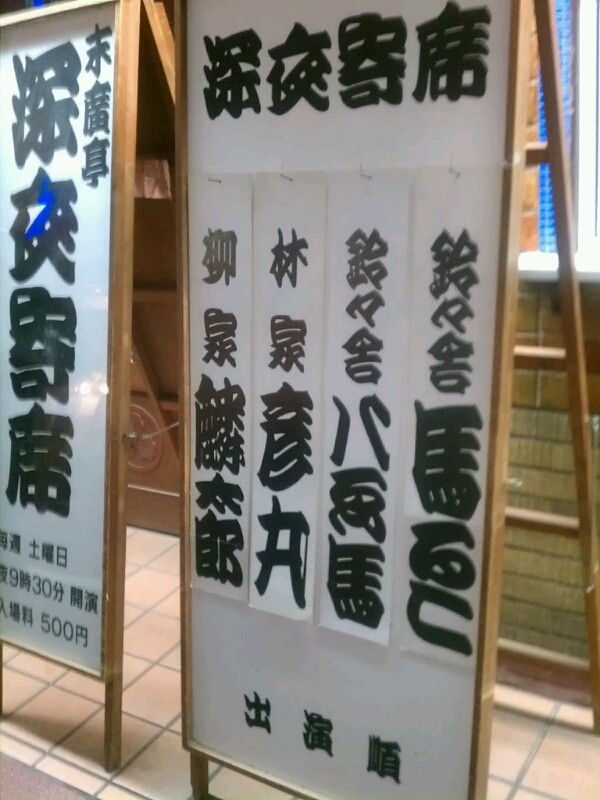 末廣亭
深夜寄席
毎週 土曜日
夜9時30分 開演
入場料 500円
深夜寄席
鈴々舎馬るこ
鈴々舎八ゑ馬
林家彦丸
柳家麟太郎
出演順